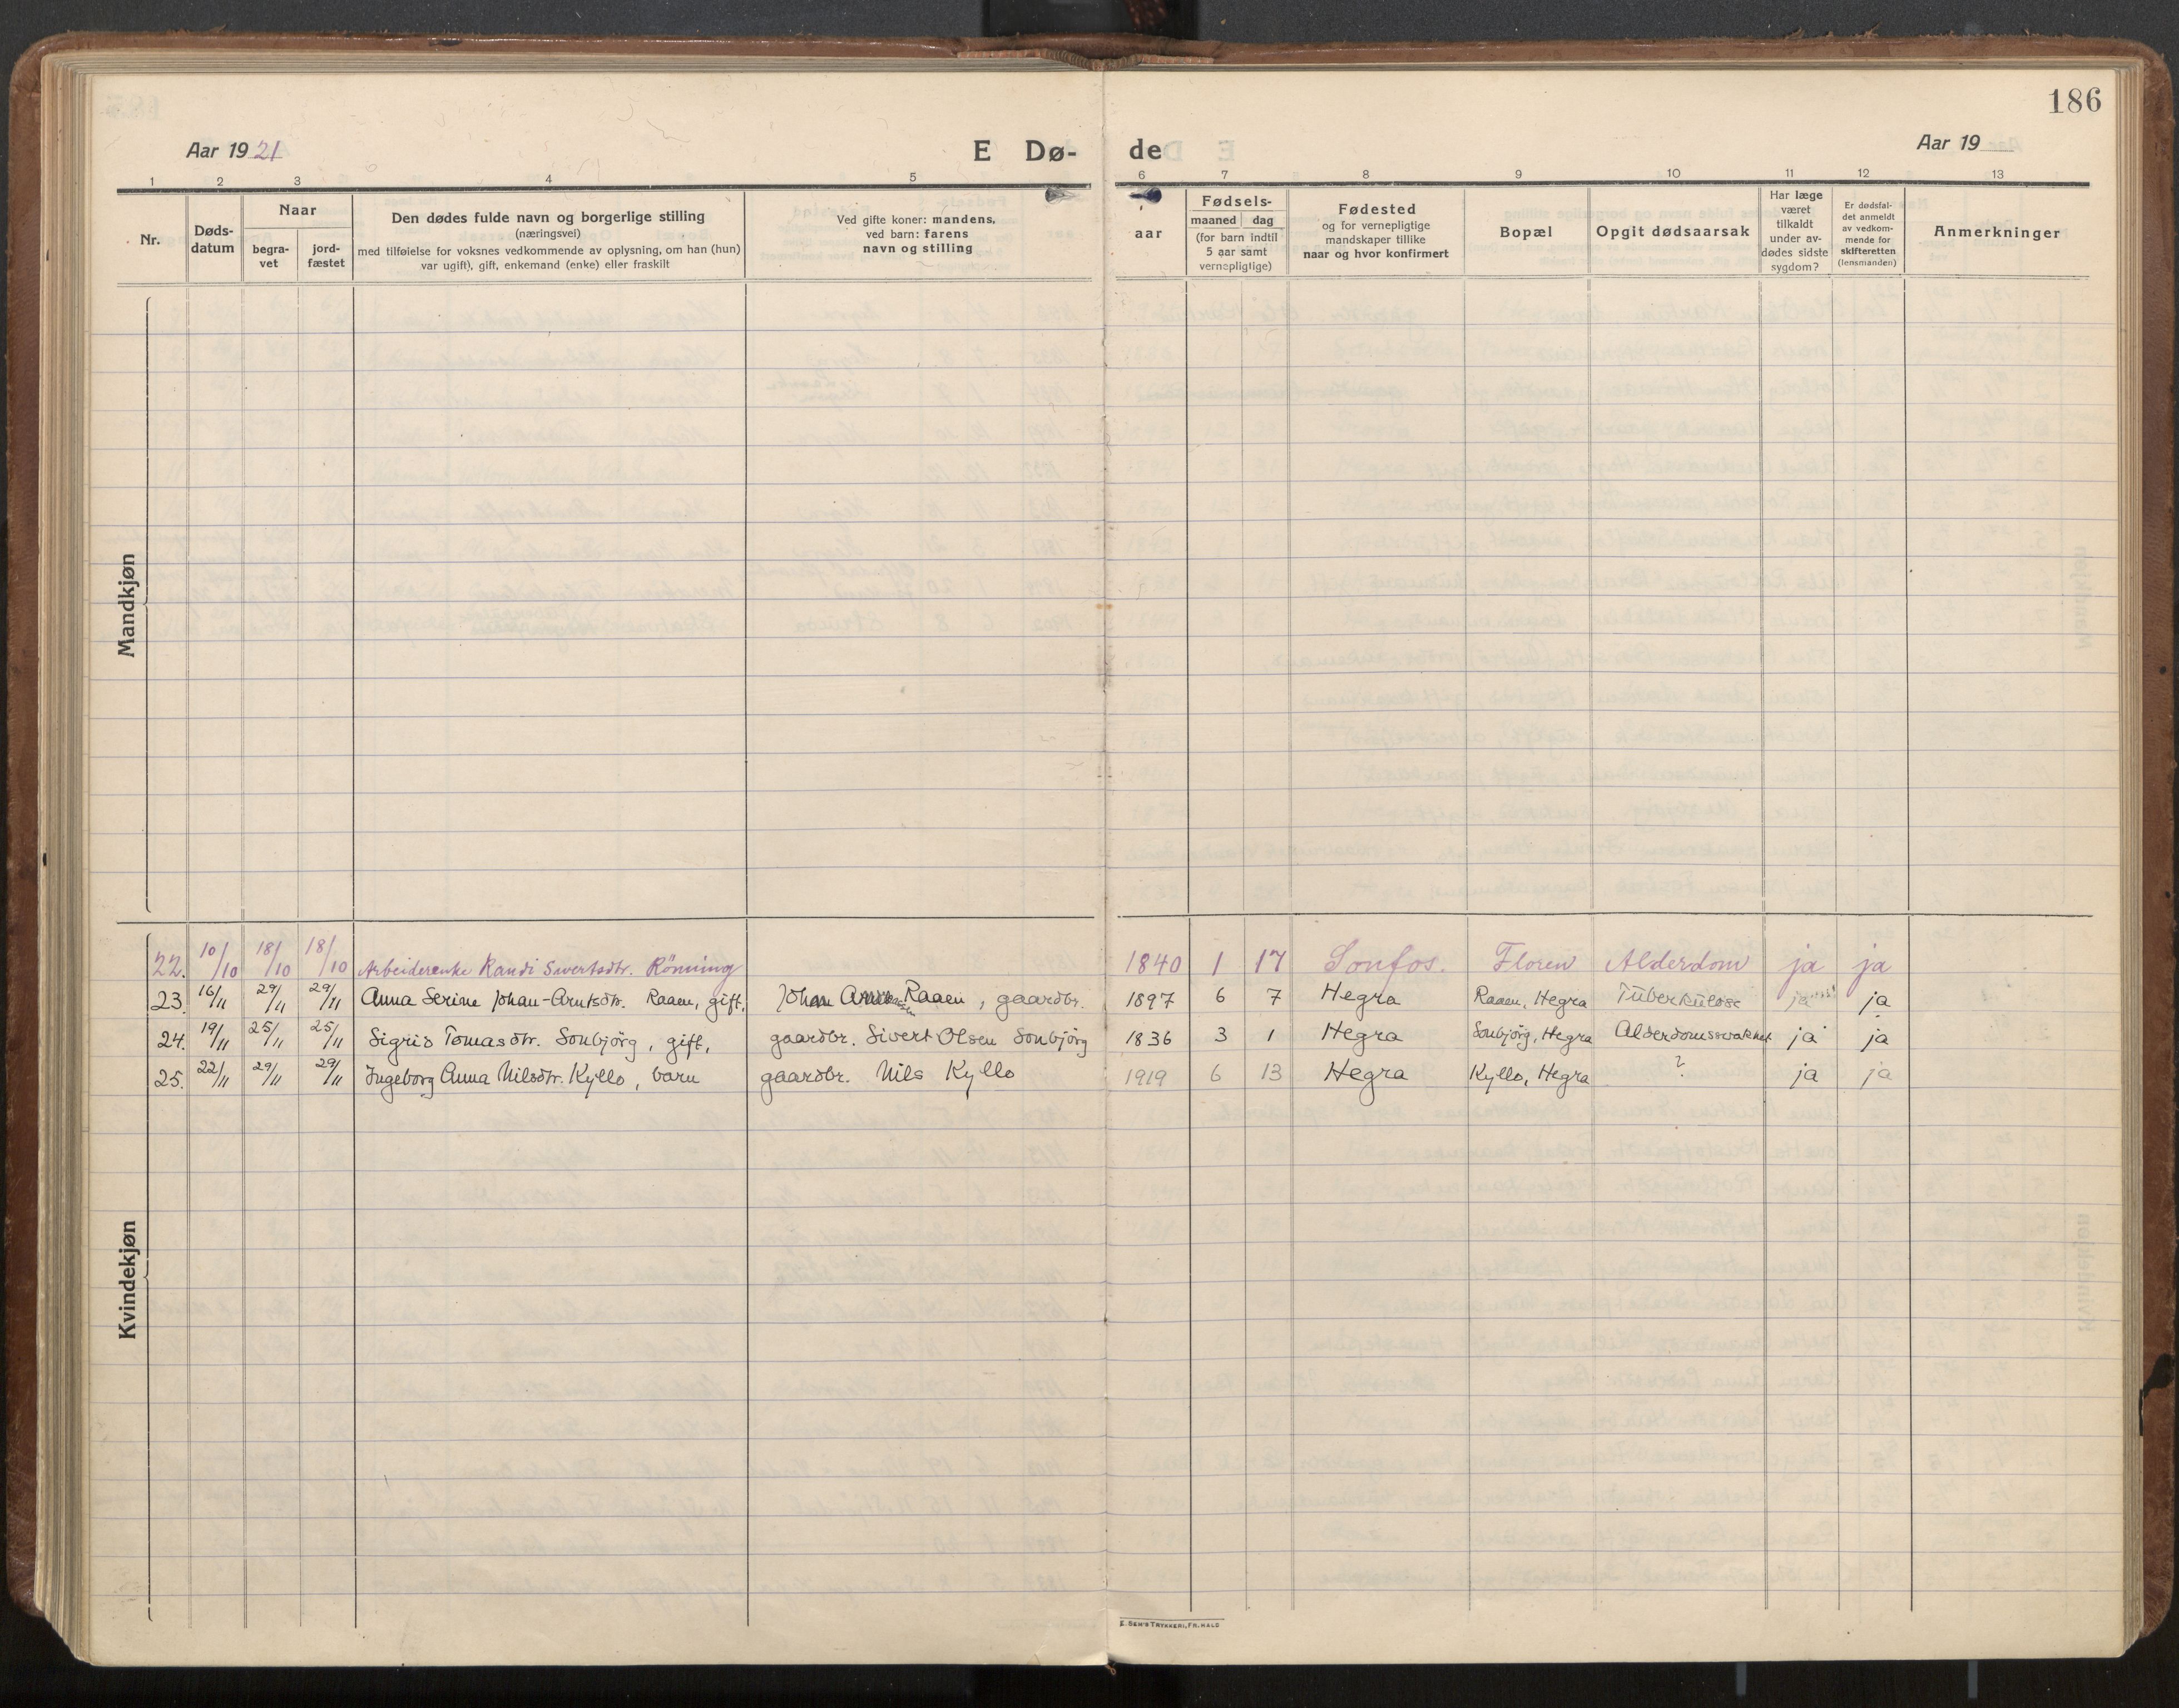 186
Aar 1921
E Dø-
de
Aar 19
1 2 3 4 5 6 7 8 9 10 11 12 13
Nr.
Døds-
datum
Naar
begra-
vet
jord-
fæstet
Den dødes fulde navn og borgerlige stilling
(næringsvei)
med tilføielse for voksnes vedkommende av oplysning, om han (hun)
var ugift), gift, enkemand (enke) eller fraskilt
Ved gifte koner: mandens,
ved barn: farens
navn og stilling
aar
Fødsels-
maaned dag
(for barn indtil
5 aar samt
vernepligtige)
Fødested
og for vernepligtige
mandskaper tillike
naar og hvor konfirmert
Bopæl
Opgit dødsaarsak
Har læge
været
tilkaldt
under av-
dødes sidste
sygdom?
Er dødsfal-
det anmeldt
av vedkom-
mende for
skifteretten
(lensmanden)
Anmerkninger
Mandkjøn
Kvindekjøn
22. 10/10 18/10 18/10 Arbeiderenke Randi Sivertsdtr. Rönning 1840 1 17 Sonfos. Floren Alderdom ja ja
23. 16/11 29/11 29/11 Anna Serine Johan-Arntsdtr. Raaen, gift, Johan Raaen, gaardbr. 1897 6 7 Hegra Raaen, Hegra Tüberkülose ja ja
24. 19/11 25/11 25/11 Sigrid Tomasdtr. Sonbjörg, gift, gaardbr. Sivert Olsen Sonbjörg 1836 3 1 Hegra Sonbjörg, Hegra Alderdomssvakhet ja ja
25. 22/11 29/11 29/11 Ingeborg Anna Nilsdtr. Kyllo, barn gaardbr. Nils Kyllo 1919 6 13 Hegra Kyllo, Hegra ? ja ja
E. SEM'S TRYKKERI, FR.HALD